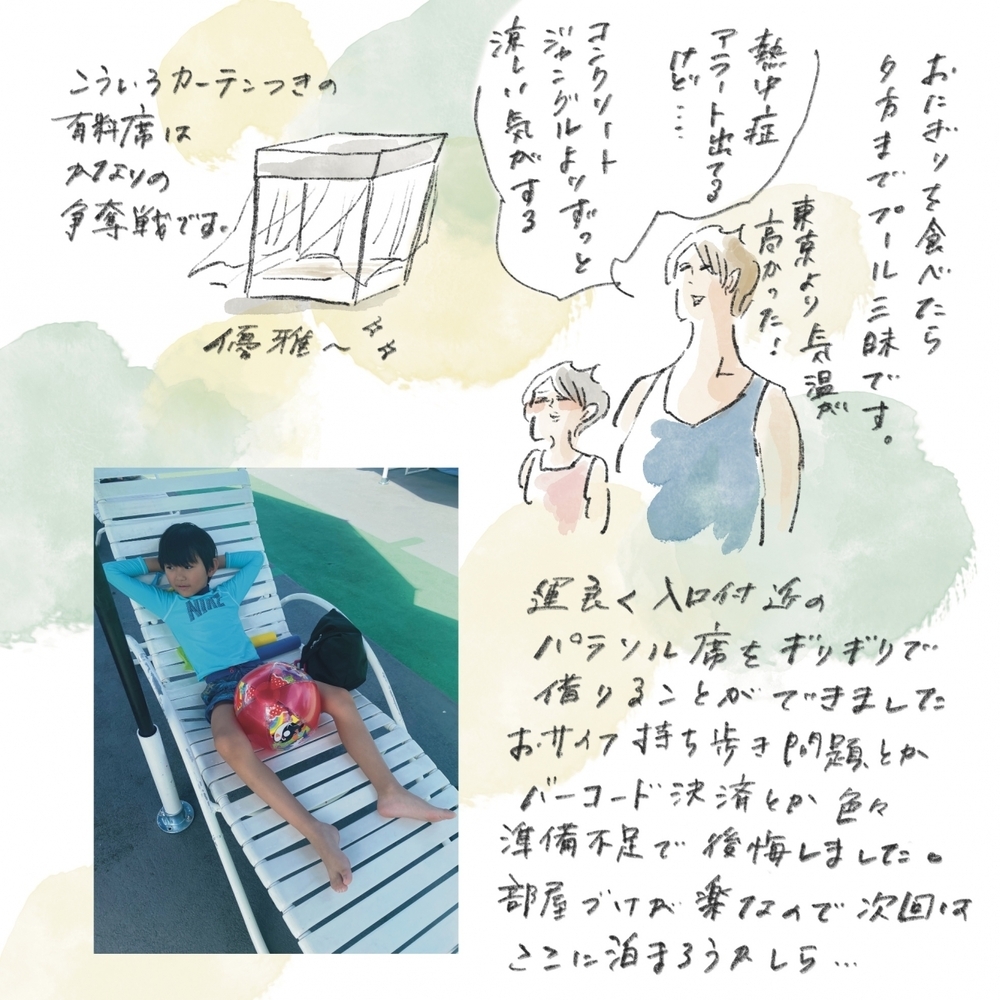 おにぎりを食べたら
夕方までプール三昧です。
東京より気温が
高かった！
熱中症
アラート出てる
けど....
コンクリート
ジャングルよりずっと
涼しい気がする
こういうカーテンつきの
有料席は
かなりの
争奪戦です。
優雅〜
NIKE
運良く入口付近の
パラソル席をギリギリで
借りることができました
おサイフ持ち歩き問題とか
バーコード決済とか色々
準備不足で後悔しました。
部屋づけが楽なので次回は
ここに泊まろうかしら...